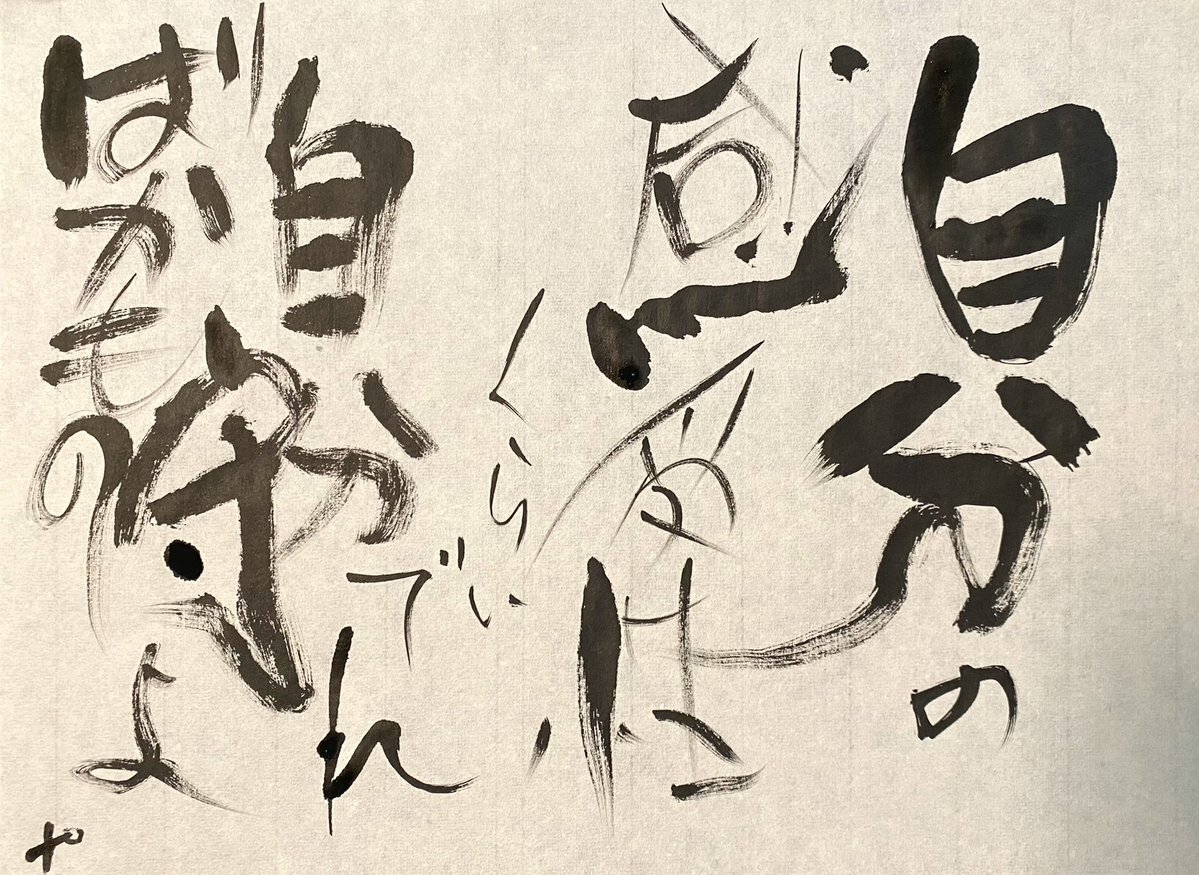 自分の
感受性
くらい
自分で
守れ
ばかものよ